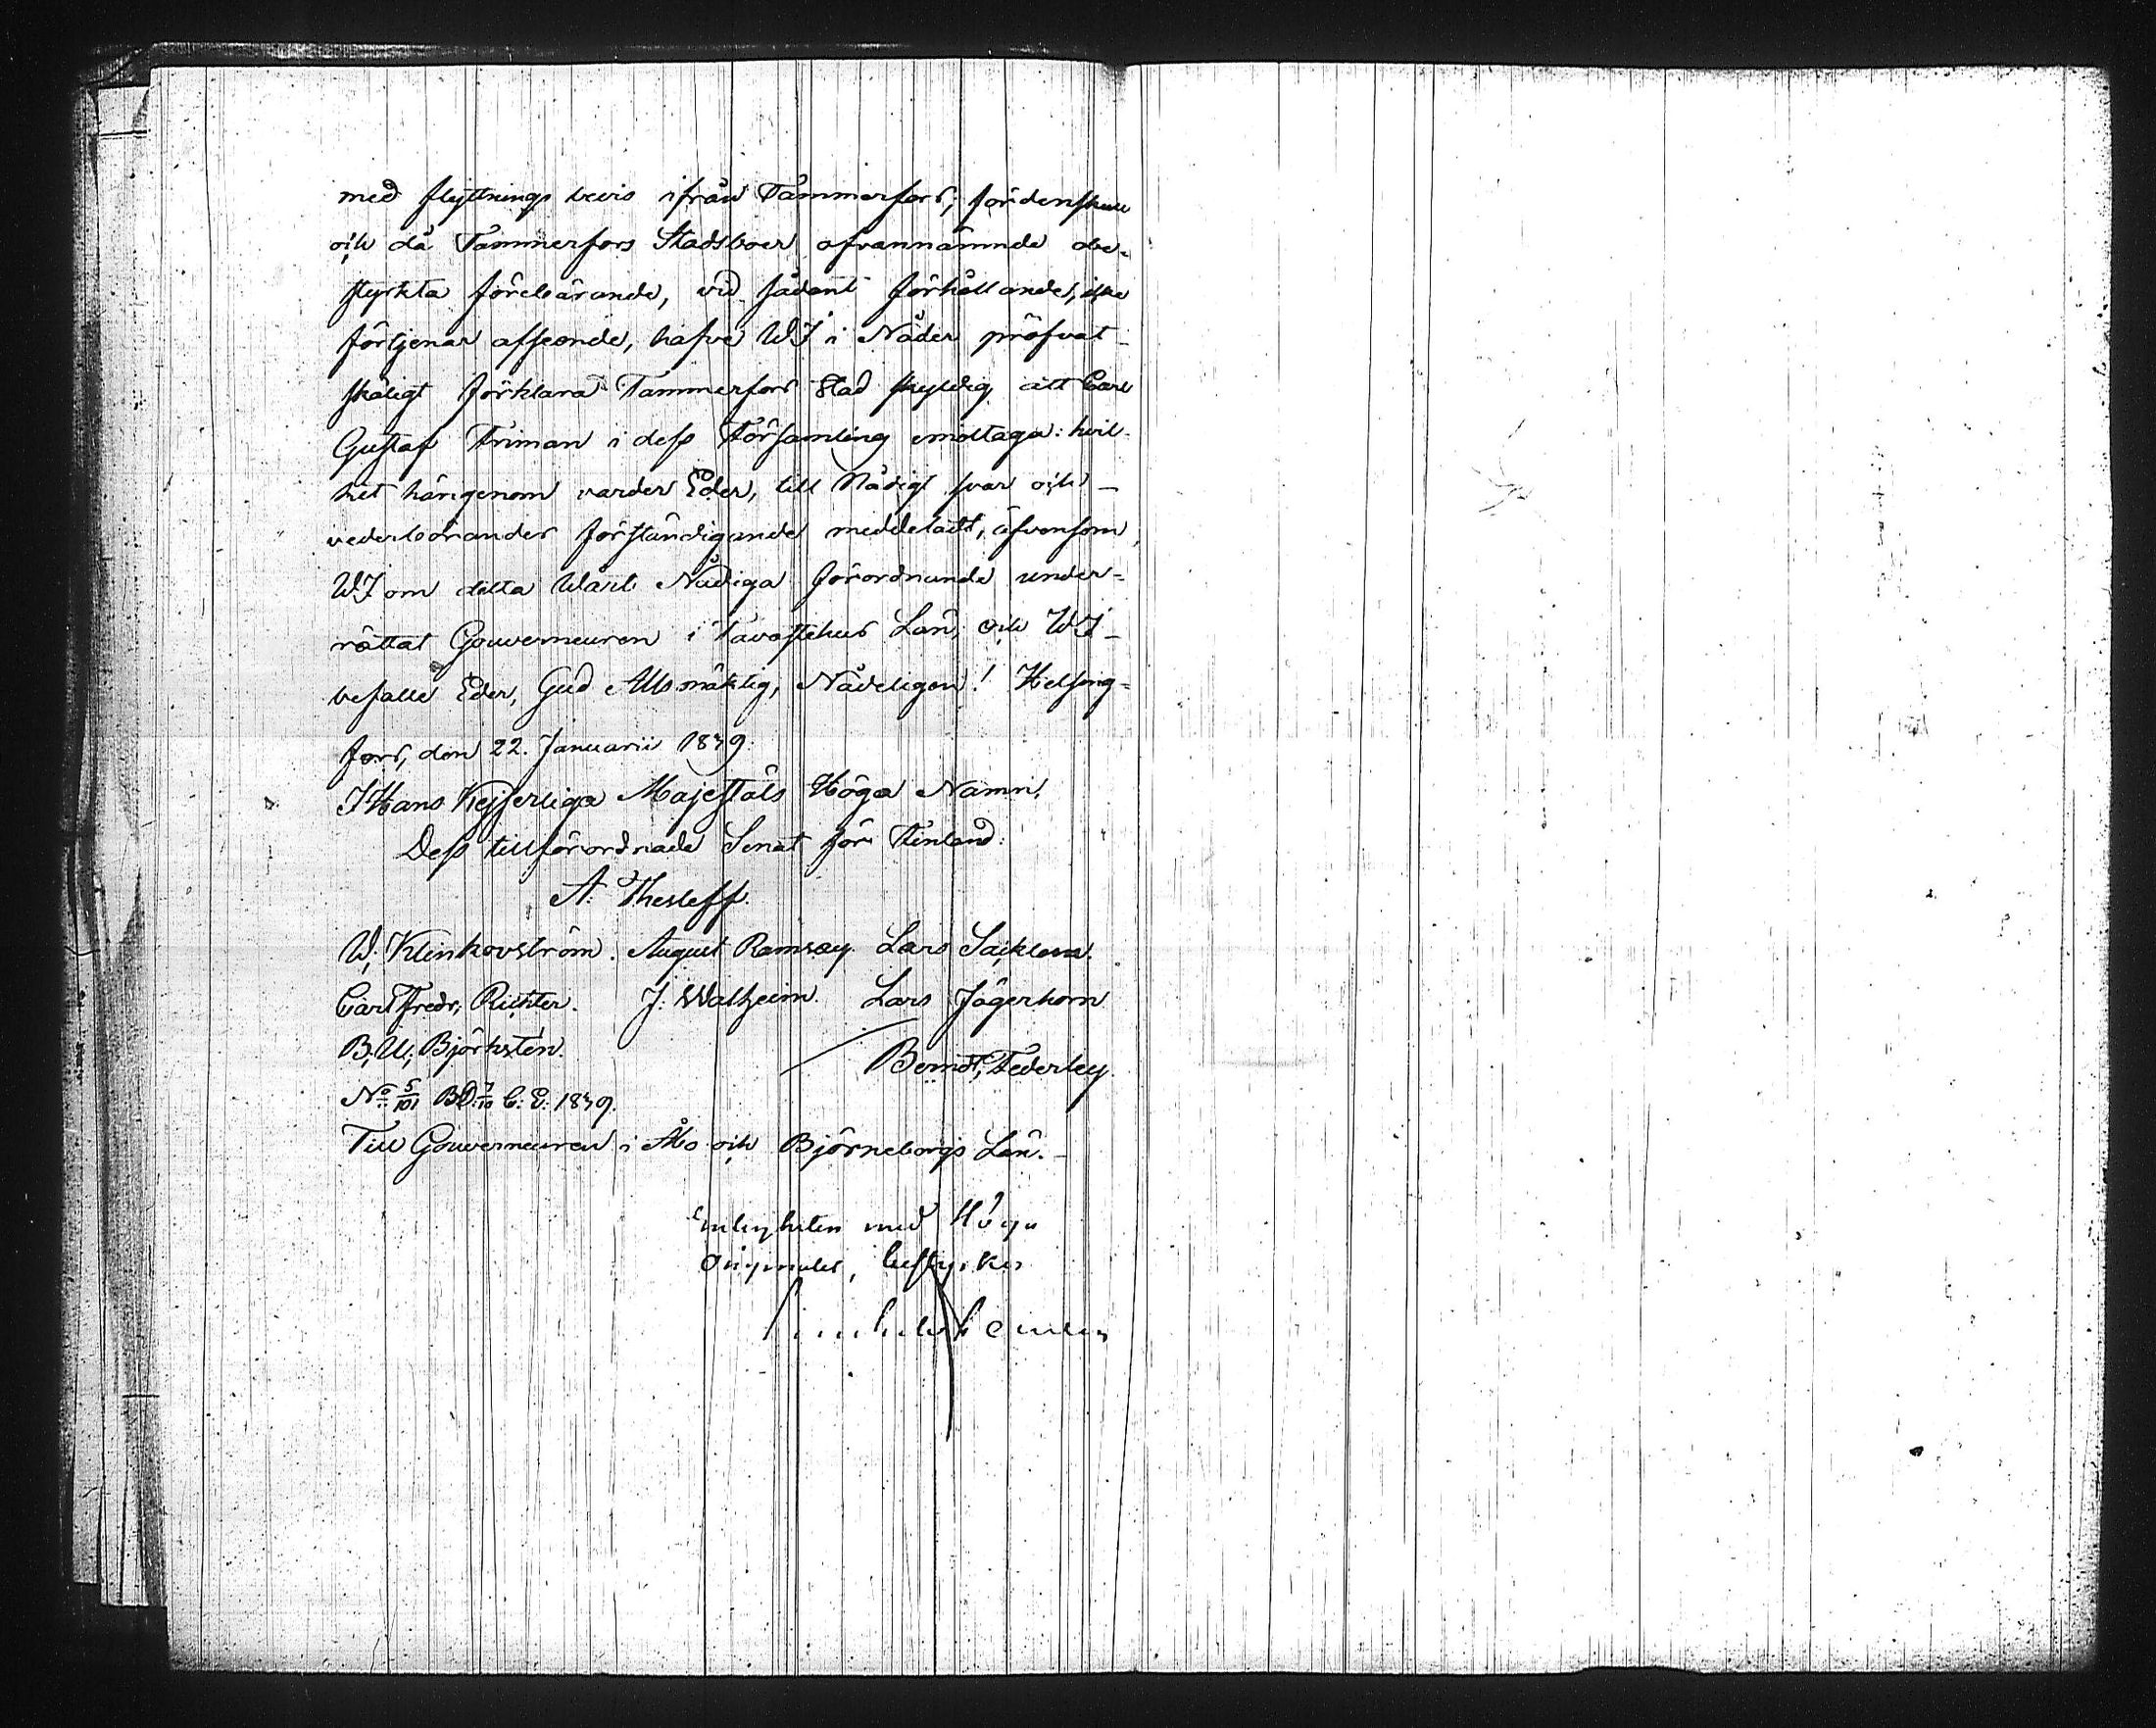 med flyttnings bevis ifrån Tammerfors; fördenskull
och då Tammerfors Stadsboers ofvannämnde obe-
styrkta förebärande, vid sådant förhållande, icke
förtjenar afseende, hafve WJ i Nåder pröfvat
skäligt förklara Tammerfors Stad skyldig att Carl
Gustaf Friman i dess Församling emottaga: hvil-
ket härigenom varder Eder, till Nådigt svar och
vederbörandes förständigande meddeladt, äfvensom
WJ om detta Wårt Nådiga förordnande under-
rättat Gouverneuren i Tavastehus Län; och WJ
befalle Eder, Gud Allsmäktig, Nådeligen! Helsing-
fors, den 22. Januarii 1839.
J Hans Kejserliga Majestäts Höga Namn,
Dess tillförordnade Senat för Finland:
A. Thesleff.
W; Klinkovström. August Ramsay. Lars Sacklen.
Carl Fredr; Richter. J. Walheim. Lars Jägerhorn
B; U; Björksten.
Berndt; Federley.
No 5/101 BD. 7/10 C. E. 1839.
Till Gouverneuren i Åbo och Björneborgs Län.
Enligheten med Höga
Originalet, bestyrker